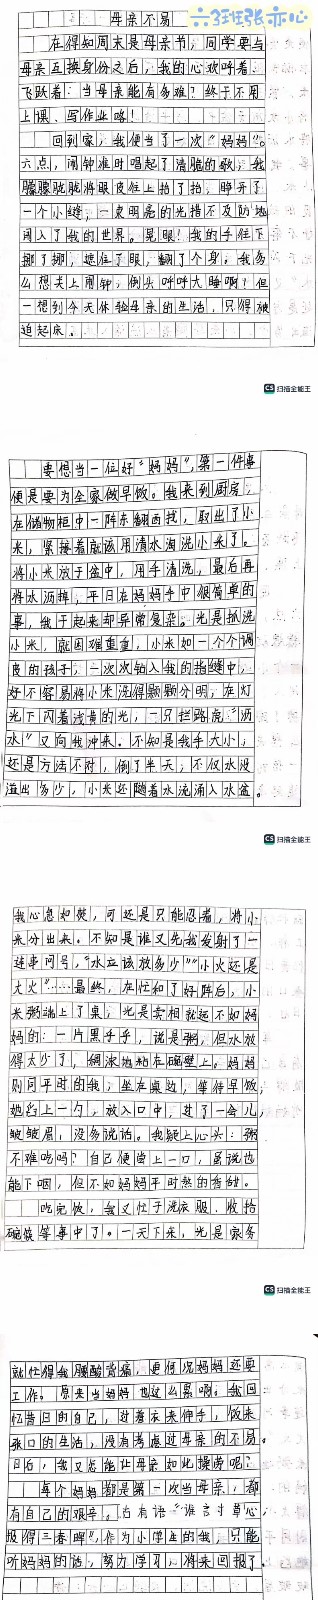 母亲不易
六3班张亦心
在得知周末是母亲节，同学要与
母亲互换身份之后，我的心欢呼着、
飞跃着：当母亲能有多难？终于不用
上课、写作业咯！
回到家，我便当了一次“妈妈”。
六点，闹钟准时唱起了清脆的歌，我
朦朦胧胧将眼皮往上抬了抬，睁开了
一个小缝，一束明亮的光措不及防地
闯入了我的世界。晃眼！我的手往下
挪了挪，遮住了眼，翻了个身。我多
么想关上闹钟，倒头呼呼大睡啊！但
一想到今天体验母亲的生活，只得被
迫起床。
扫描全能王
要想当一位好“妈妈”，第一件事
便是要为全家做早饭。我来到厨房，
在储物柜中一阵东翻西找，取出了小
米，紧接着就该用清水淘洗小米了。
将小米放于盆中，用手清洗，最后再
将水沥掉，平日在妈妈手中很简单的
事，我干起来却异常复杂。光是抓洗
小米，就困难重重，小米如一个个调
皮的孩子，一次次钻入我的指缝中，
好不容易将小米洗得颗颗分明，在灯
光下闪着浅黄的光，一只拦路虎“沥
水”又向我冲来。不知是我手太小，
还是方法不对，倒了半天，不仅水没
溢出多少，小米还随着水流涌入水盆。
扫描全能王
我心急如焚，可还是只能忍着，将小
米分出来。不知是谁又先我发射了一
连串问号，“水应该放多少”“小火还是
大火”……最终，在忙和了好阵后，小
米粥端上了桌，光是卖相就远不如妈
妈的：一片黑乎乎，说是粥，但水放
得太少了，稠浓地粘在碗壁上。妈妈
则同平时的我，坐在桌边，等待早饭，
她舀上一勺，放入口中，过了一会儿，
皱皱眉，没多说话。我疑上心头：粥
不难吃吗？自己便尝上一口，虽说也
能下咽，但不如妈妈平时熬的香甜。
吃完饭，我又忙于洗衣服、收拾
碗筷等事中了。一天下来，光是家务
扫描全能王
就忙得我腰酸背痛，更何况妈妈还要
工作。原来当妈妈也这么累啊！我回
忆昔日的自己，过着衣来伸手，饭来
张口的生活，没有考虑过母亲的不易。
日后，我又怎能让母亲如此操劳呢？
每个妈妈都是第一次当母亲，都
有自己的艰辛。古有语“谁言寸草心，
报得三春晖”，作为小学生的我，只能
听妈妈的话，努力学习，将来回报了。